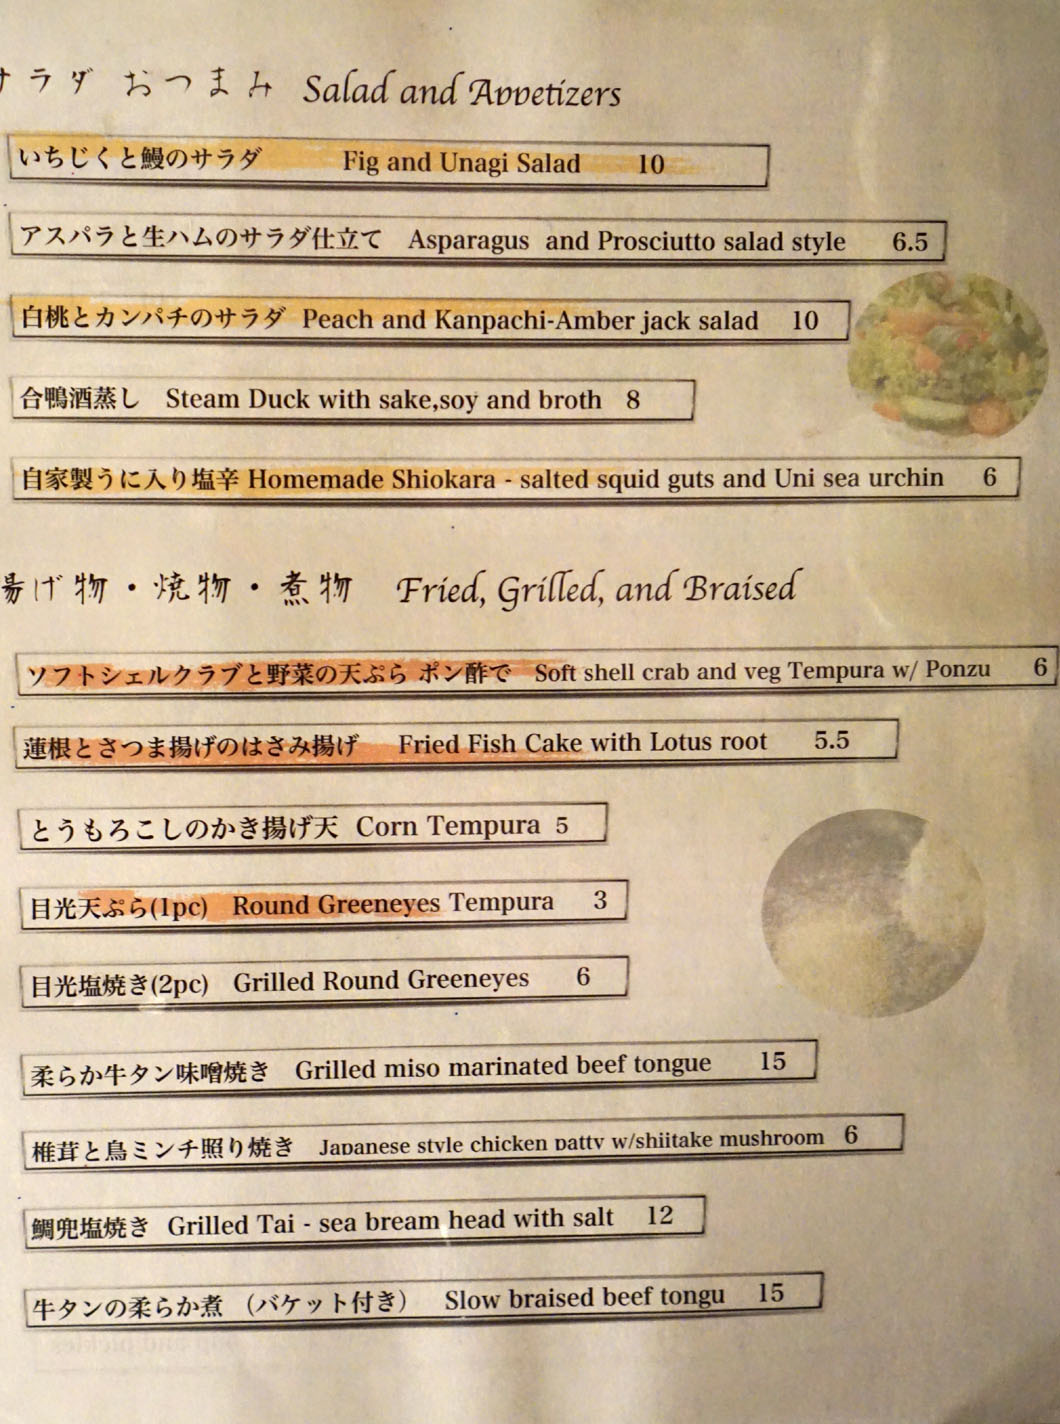 サラダ おつまみ Salad and Appetizers
いちじくと鰻のサラダ Fig and Unagi Salad 10
アスパラと生ハムのサラダ仕立て Asparagus and Prosciutto salad style 6.5
白桃とカンパチのサラダ Peach and Kanpachi-Amber jack salad 10
合鴨酒蒸し Steam Duck with sake,soy and broth 8
自家製うに入り塩辛 Homemade Shiokara - salted squid guts and Uni sea urchin 6
揚げ物・焼物・煮物 Fried, Grilled, and Braised
ソフトシェルクラブと野菜の天ぷら ポン酢で Soft shell crab and veg Tempura w/ Ponzu 6
蓮根とさつま揚げのはさみ揚げ Fried Fish Cake with Lotus root 5.5
とうもろこしのかき揚げ天 Corn Tempura 5
目光天ぷら(1pc) Round Greeneyes Tempura 3
目光塩焼き(2pc) Grilled Round Greeneyes 6
柔らか牛タン味噌焼き Grilled miso marinated beef tongue 15
椎茸と鳥ミンチ照り焼き Japanese style chicken patty w/shiitake mushroom 6
鯛兜塩焼き Grilled Tai - sea bream head with salt 12
牛タンの柔らか煮 （バケット付き） Slow braised beef tongu 15